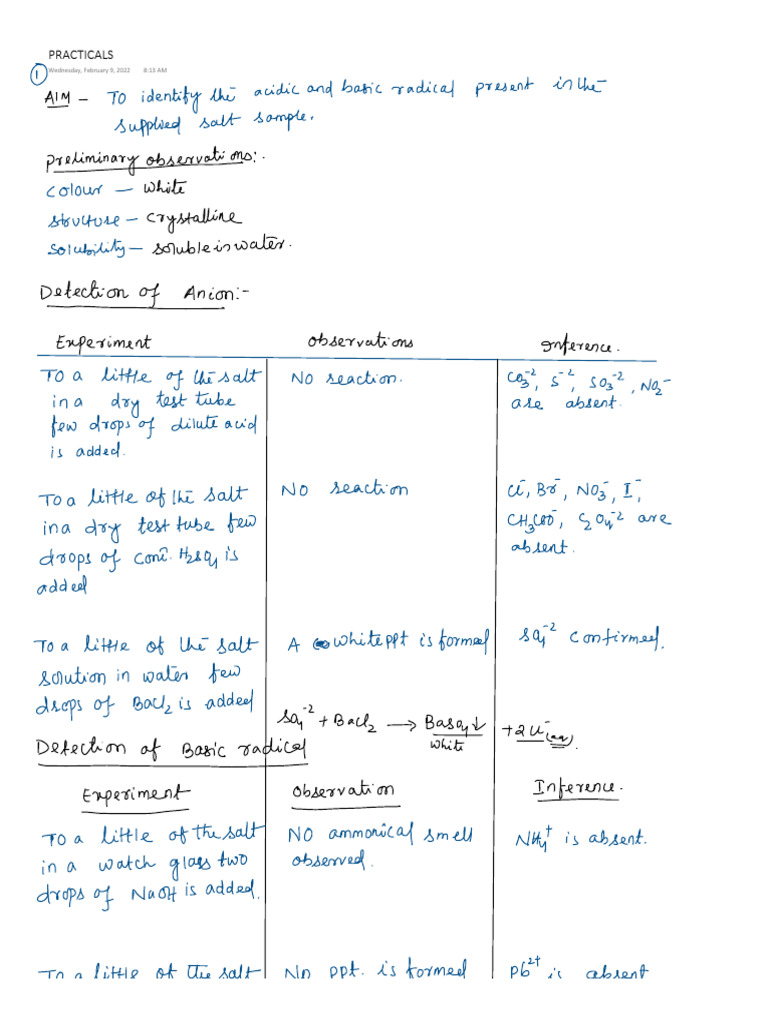 PRACTICALS
Wednesday, February 9, 2022 8:13 AM
1
AIM – To identify the acidic and basic radical present in the
supplied salt sample.
Preliminary observations:-
Colour — White
Structure – Crystalline
Solubility – Soluble in water.
Detection of Anion:-
Experiment Observations Inference.
To a little of the salt
in a dry test tube
few drops of dilute acid
is added.
No reaction.
CO3^-2, S^-2, SO3^-2, NO2^-
are absent.
To a little of the salt
in a dry test tube few
drops of conc. H2SO4 is
added
No reaction
Cl^-, Br^-, NO3^-, I^-,
CH3COO^-, C2O4^-2 are
absent.
To a little of the salt
solution in water few
drops of BaCl2 is added
A white ppt is formed
SO4^-2 confirmed.
SO4^-2 + BaCl2 → BaSO4↓ + 2Cl^-(aq).
White
Detection of Basic radical
Experiment Observation Inference.
To a little of the salt
in a watch glass two
drops of NaOH is added.
No ammonical smell
observed.
NH4^+ is absent.
To a little of the salt
No ppt. is formed
Pb^2+ is absent